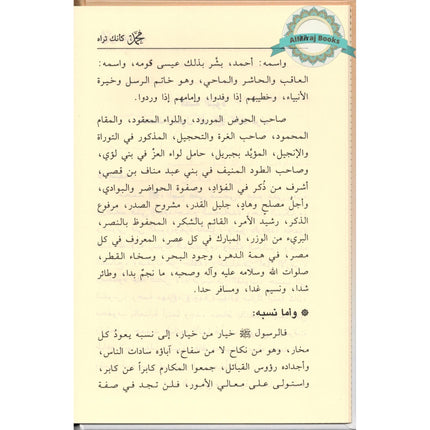 AlMiraj Books
محمد ﷺ كأنك تراه
واسمه: أحمد، بشّر بذلك عيسى قومه، واسمه:
العاقب والحاشر والماحي، وهو خاتم الرسل وخيرة
الأنبياء، وخطيبهم إذا وفدوا، وإمامهم إذا وردوا.
صاحب الحوض المورود، واللواء المعقود، والمقام
المحمود، صاحب الغرة والتحجيل، المذكور في التوراة
والإنجيل، المؤيَّد بجبريل، حامل لواء العزّ في بني لؤي،
وصاحب الطود المنيف في بني عبد مناف بن قصي،
أشرف من ذُكر في الفؤاد، وصفوة الحواضر والبوادي،
وأجلُّ مصلح وهاد، جليل القدر، مشروح الصدر، مرفوع
الذكر، رشيد الأمر، القائم بالشكر، المحفوظ بالنصر،
البريء من الوزر، المبارك في كل عصر، المعروف في كل
مصر، في همة الدهر، وجود البحر، وسخاء القطر،
صلوات الله وسلامه عليه وآله وصحبه، ما نجمٌ بدا، وطائر
شدا، ونسيم غدا، ومسافر حدا.
واما نسبه:
فالرسول ﷺ خيار من خيار، إلى نسبه يعودُ كل
مخار، وهو من نكاح لا من سفاح، آباؤه سادات الناس،
وأجداده رؤوس القبائل، جمعوا المكارم كابراً عن كابر،
واستولى على معالي الأمور، فلن تجد في صفة